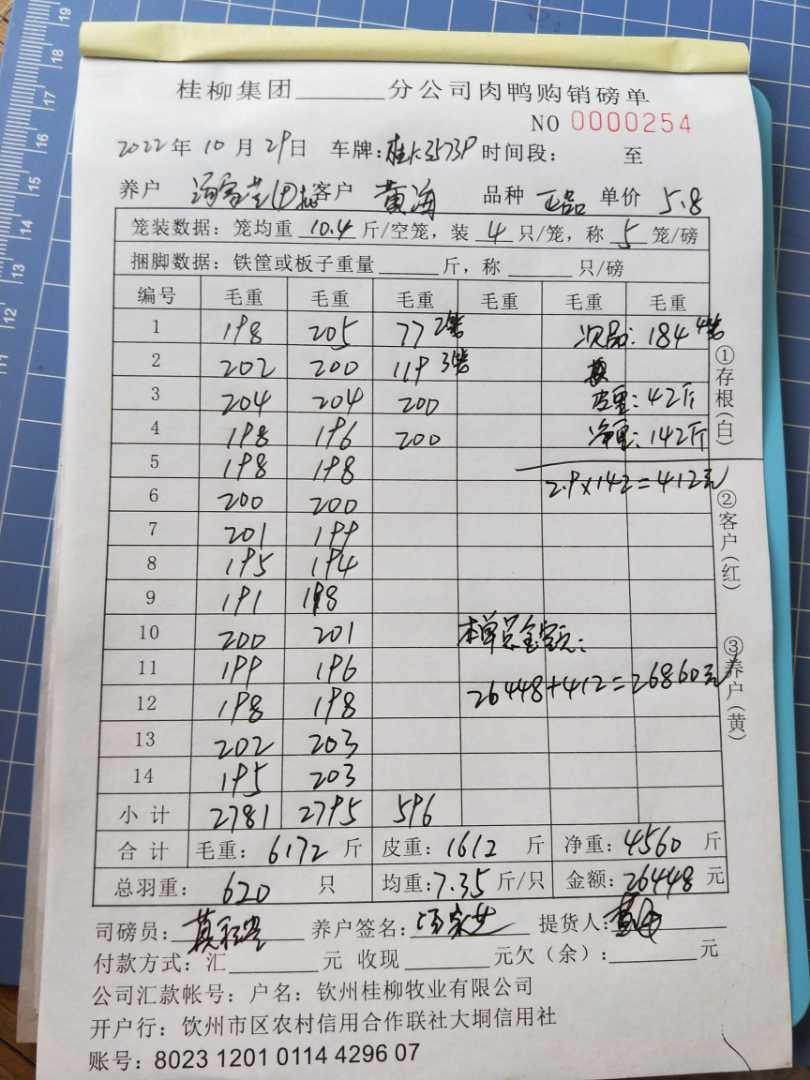 桂柳集团______分公司肉鸭购销磅单
NO 0000254
2022年 10月 29日 车牌: 桂K3573P 时间段: 至
养户 客户 黄海 品种 正品 单价 5.8
笼装数据: 笼均重 10.4 斤/空笼, 装 4 只/笼, 称 5 笼/磅
捆脚数据: 铁筐或板子重量______斤, 称______只/磅
编号 毛重 毛重 毛重 毛重 毛重 毛重
1 198 205 77 2笼 次品: 184 4笼
2 202 200 119 3笼
3 204 204 200 皮重: 42斤
4 198 196 200 净重: 142斤
5 198 198 2.9×142=412元
6 200 200
7 201 199
8 195 194
9 191 198
10 200 201 本单总金额:
11 199 196
12 198 198 26448+412=26860元
13 202 203
14 195 203
小计 2781 2795 596
合计 毛重: 6172 斤 皮重: 1612 斤 净重: 4560 斤
总羽重: 620 只 均重: 7.35 斤/只 金额: 26448 元
司磅员: 养户签名: 提货人:
付款方式: 汇______元 收现______元欠(余): ______元
公司汇款帐号: 户名: 钦州桂柳牧业有限公司
开户行: 钦州市区农村信用合作联社大垌信用社
账号: 8023 1201 0114 4296 07
①存根(白)
②客户(红)
③养户(黄)